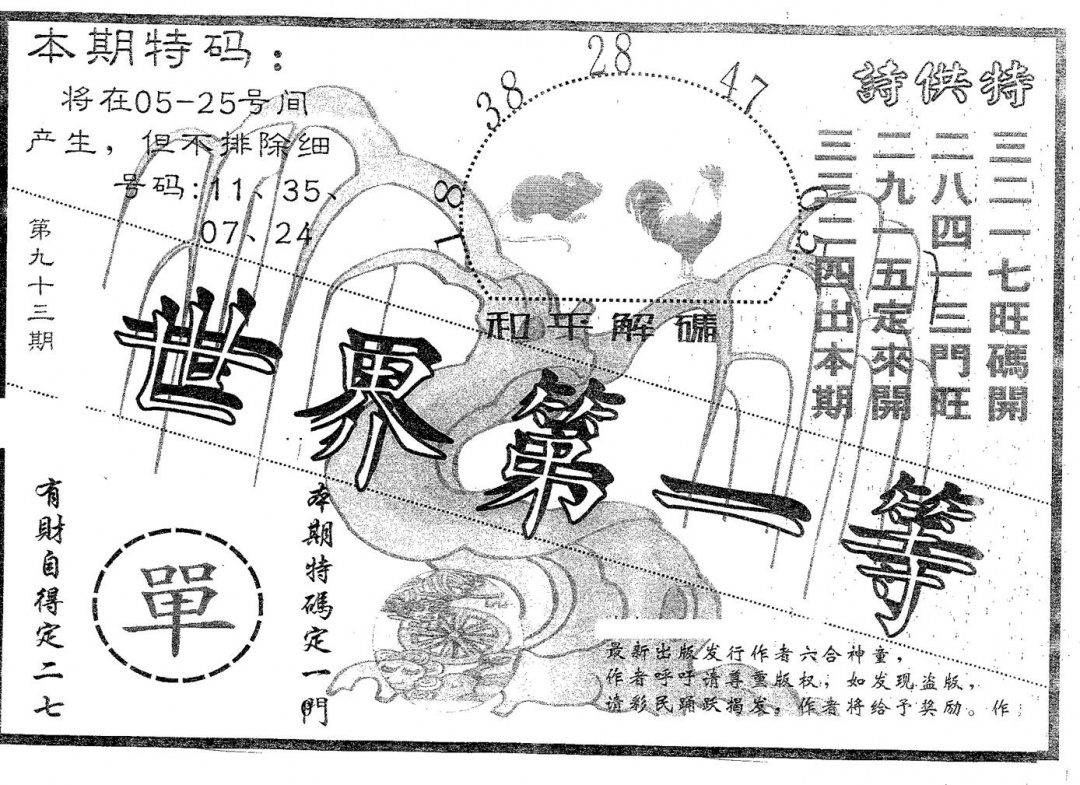 本期特码：
将在05-25号间
产生，但不排除细
号码:11、35、
07、24
第九十三期
38
28
47
特供詩
三二一七旺碼開
二八四一三門旺
二九一五定來開
三三二四出本期
和平解碼
世界第一等
有財自得定二七
單
本期特碼定一門
最新出版发行作者六合神童，
作者呼吁请尊重版权，如发现盗版，
请彩民踊跃揭发，作者将给予奖励。作